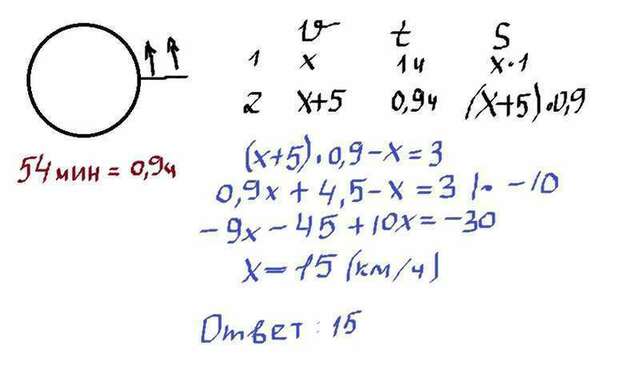 v t S
1 x 1ч x·1
2 x+5 0,9ч (x+5)·0,9
54 мин = 0,9ч
(x+5)·0,9-x=3
0,9x+4,5-x=3 |· -10
-9x-45+10x=-30
x=15 (км/ч)
Ответ: 15